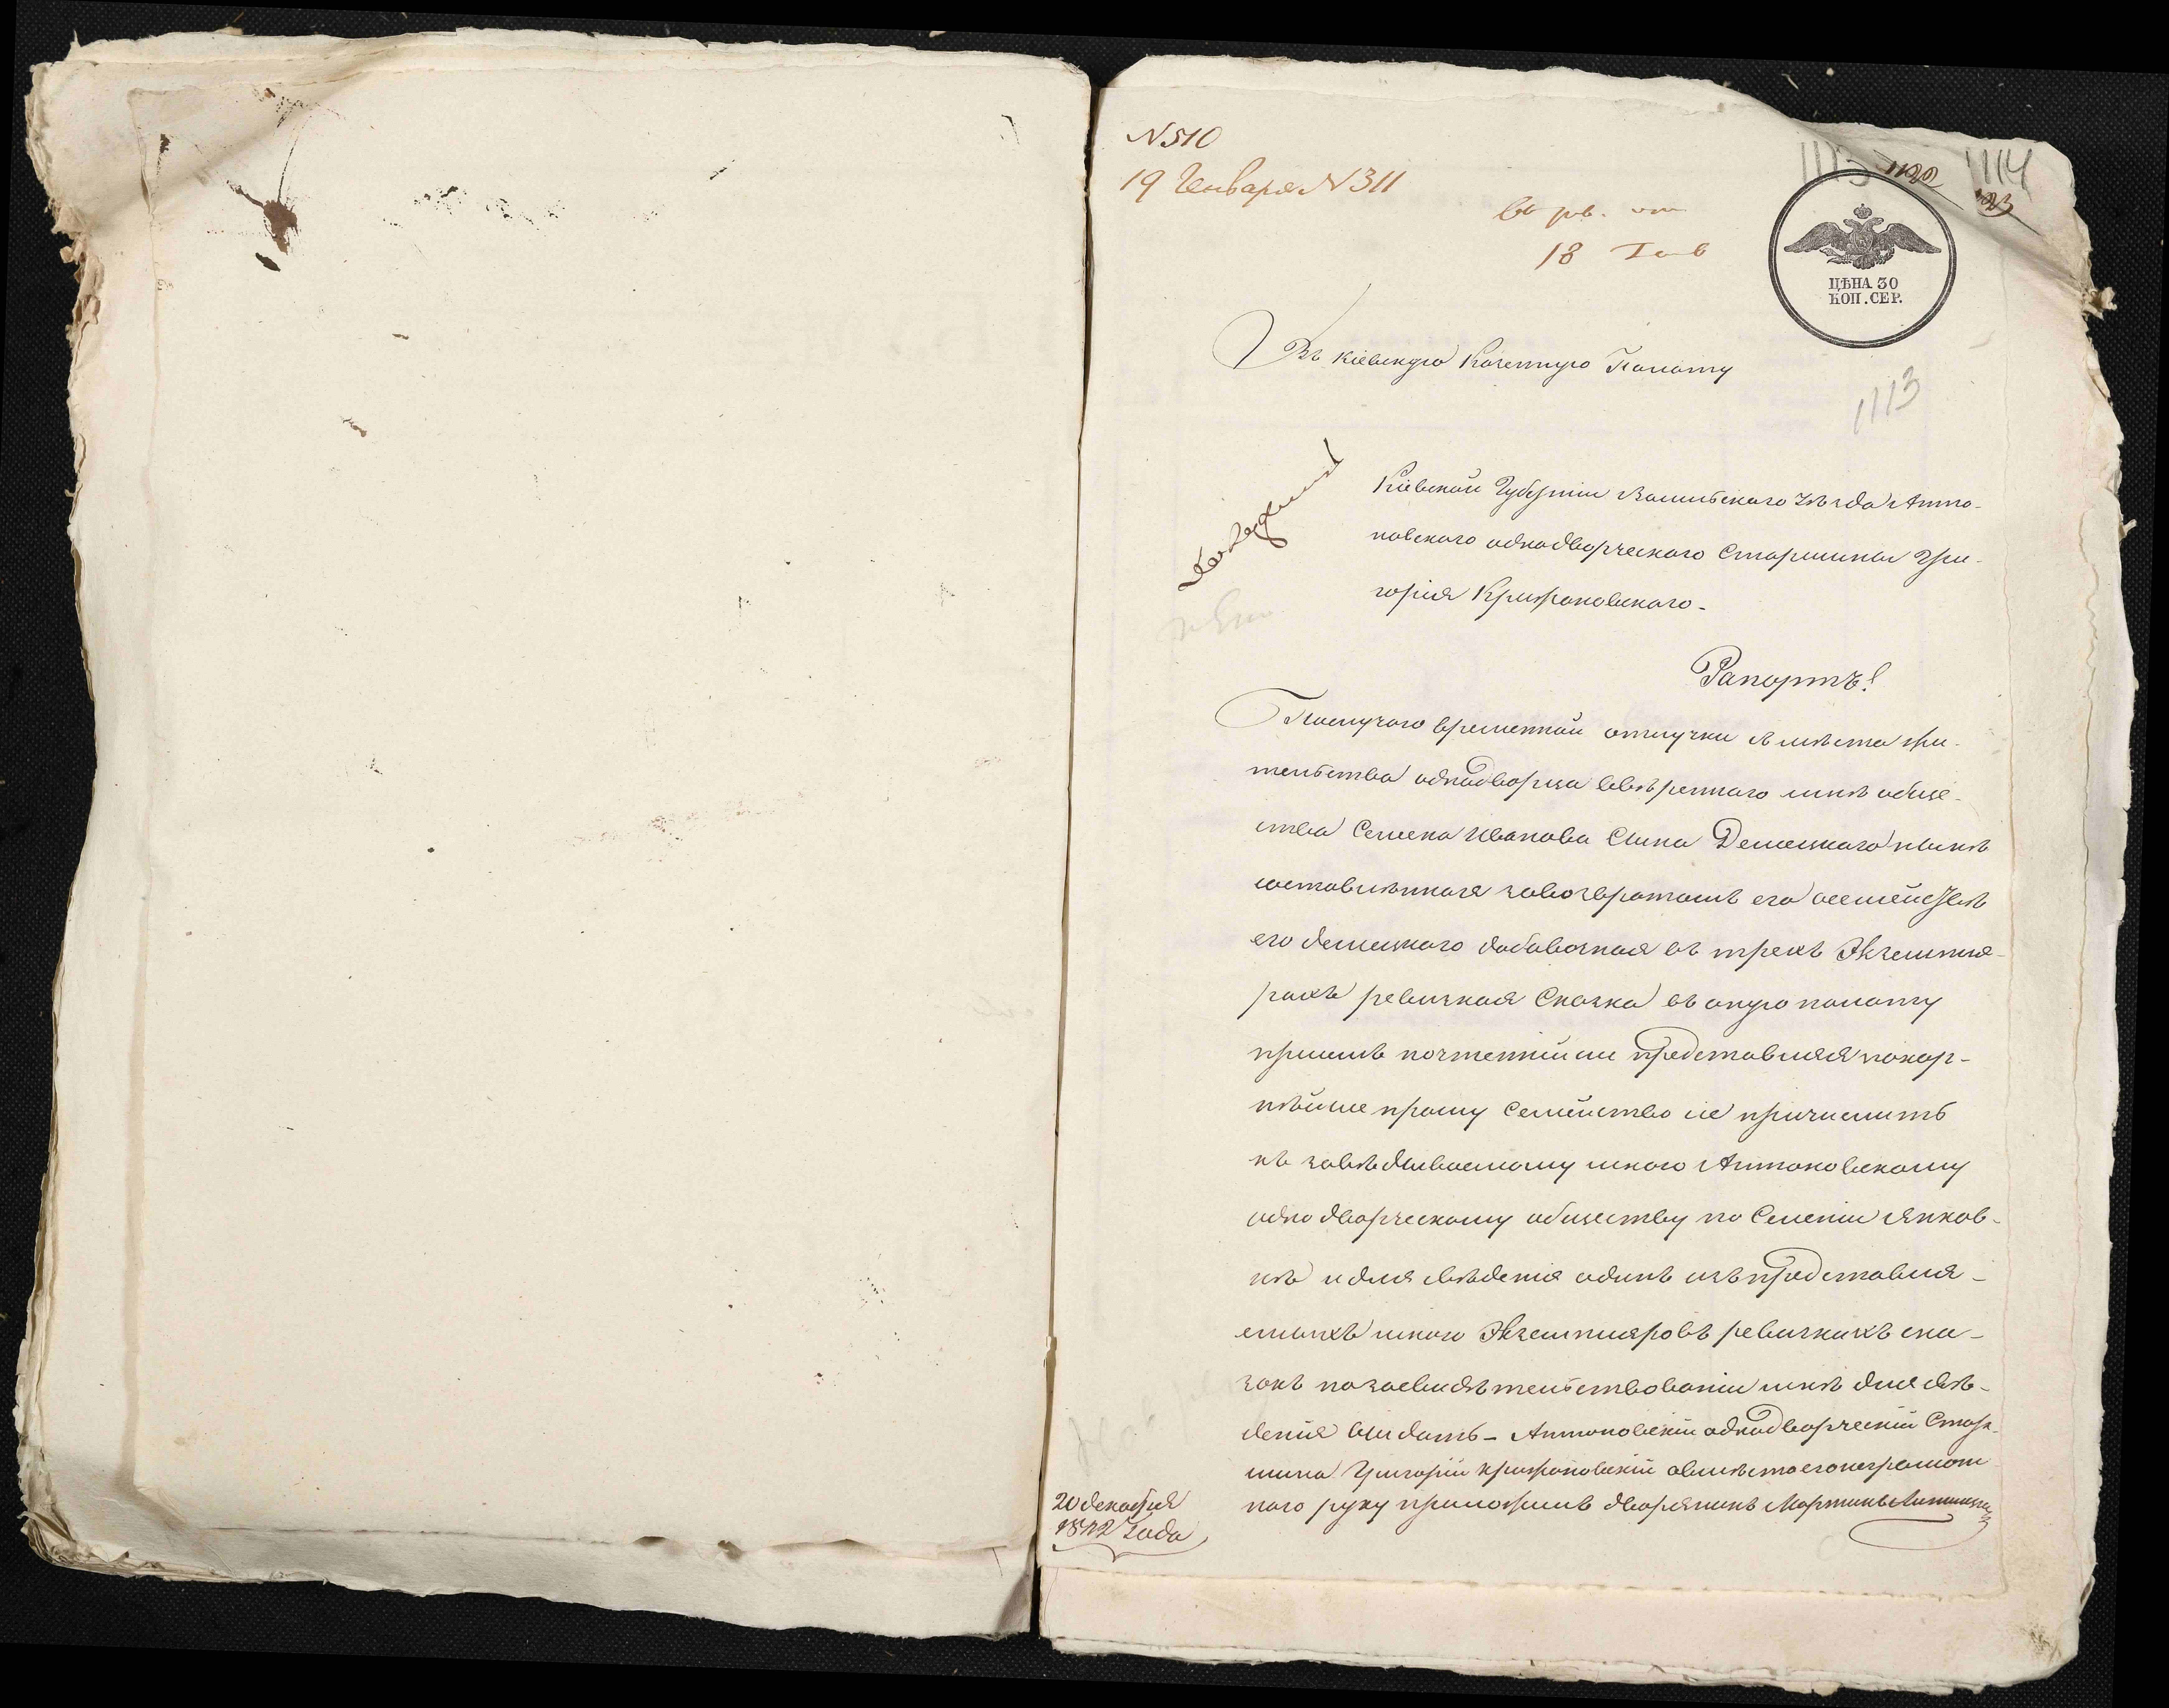 N 510
19 Генваря N 311
18 Янв
1113
1120
1114
ЦѢНА 30
КОП. СЕР.
Въ Кіевскую Казенную Палату
1113
Кіевской Губерніи Васильскаго Уѣзда Анто-
новскаго однодворческаго Старшины Гри-
горія Крижановскаго.
Рапортъ!
По случаю временной отлучки съ мѣста жи-
тельства однодворца ввѣреннаго мнѣ обще-
ства Семена Иванова Сына Демецкаго нынѣ
составленная завозвратомъ его осемействѣ
его демецкаго добавочная въ трехъ Экземпля-
рахъ ревизкая Сказка въ оную палату
присемъ почтеннійши представляя покор-
нѣйше прошу Семейство сіе причислить
къ завѣдываемому мною Антоновскому
однодворческому обществу по Селенію Янков-
кѣ и для свѣденія одинъ изъ представля-
емыхъ мною Экземпляровъ ревизкихъ ска-
зокъ по засвидѣтельствованіи мнѣ для свѣ-
денія выдать – Антоновскій однодворческій Стар-
шина Григорій Крижановскій авмѣсто его неграмот
наго руку приложилъ дворянинъ Мартинъ
20 декабря
1842 Года